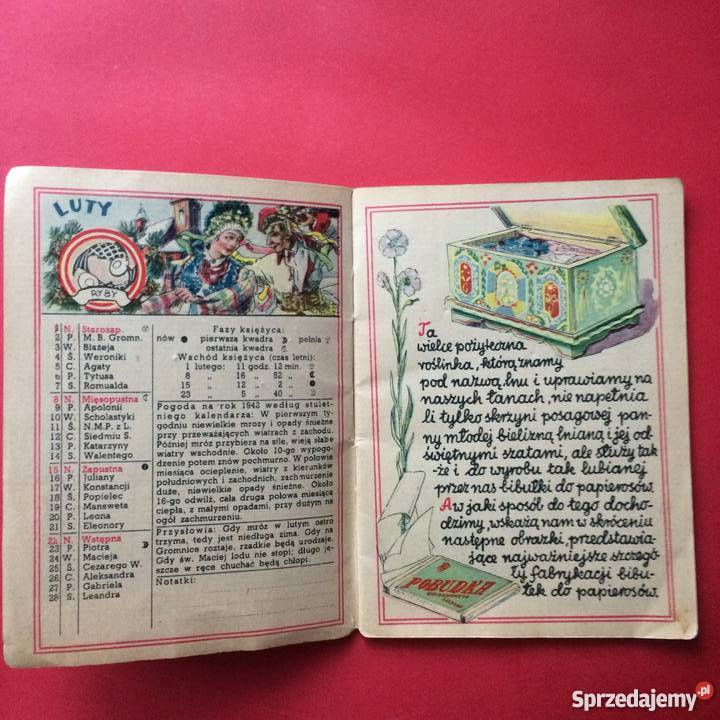 LUTY
RYBY
1 N. Starozap.
2 P. M. B. Gromn.
3 W. Błażeja
4 Ś. Weroniki
5 C. Agaty
6 P. Tytusa
7 S. Romualda
8 N. Mięsopustna
9 P. Apolonii
10 W. Scholastyki
11 Ś. N.M.P. z L.
12 C. Siedmiu S.
13 P. Katarzyny
14 S. Walentego
15 N. Zapustna
16 P. Juliany
17 W. Konstancji
18 Ś. Popielec
19 C. Mansweta
20 P. Leona
21 S. Eleonory
22 N. Wstępna
23 P. Piotra
24 W. Macieja
25 Ś. Cezarego W.
26 C. Aleksandra
27 P. Gabriela
28 S. Leandra
Fazy księżyca:
nów pierwsza kwadra pełnia
ostatnia kwadra
Wschód księżyca (czas letni):
1 lutego: 11 godz. 12 min.
8 „ 16 „ 52 „
15 „ 12 „ 2 „
23 „ 5 „ 40 „
Pogoda na rok 1942 według stulet-
niego kalendarza: W pierwszym ty-
godniu niewielkie mrozy i opady śnieżne
przy przeważających wiatrach z zachodu.
Później mróz przybiera na sile, wieją słabe
wiatry wschodnie. Około 10-go wypogo-
dzenie potem znów pochmurno. W połowie
miesiąca ocieplenie, wiatry z kierunków
południowych i zachodnich, zachmurzenie
duże, niewielkie opady śnieżne. Około
16-go odwilż, cała druga połowa miesiąca
ciepła, z małymi opadami, przy dużym na
ogół zachmurzeniu.
Przysłowia: Gdy mróz w lutym ostro
trzyma, tedy jest niedługa zima. Gdy na
Gromnice roztaje, rzadkie będą urodzaje.
Gdy św. Maciej lodu nie stopi; długo je-
szcze w ręce chuchać będą chłopi.
Notatki:
Ta
wielce pożyteczna
roślinka, którą znamy
pod nazwą lnu i uprawiamy na
naszych łanach, nie napełnia
li tylko skrzyni posagowej pan-
ny młodej bielizną lnianą i jej od-
świętnymi szatami, ale służy tak-
że i do wyrobu tak lubianej
przez nas bibułki do papierosów.
A w jaki sposób do tego docho-
dzimy, wskażą nam w skróceniu
następne obrazki, przedstawia-
jące najważniejsze szczegó-
ły fabrykacji bibu-
łek do papierosów.
POBUDKA
Sprzedajemy.pl